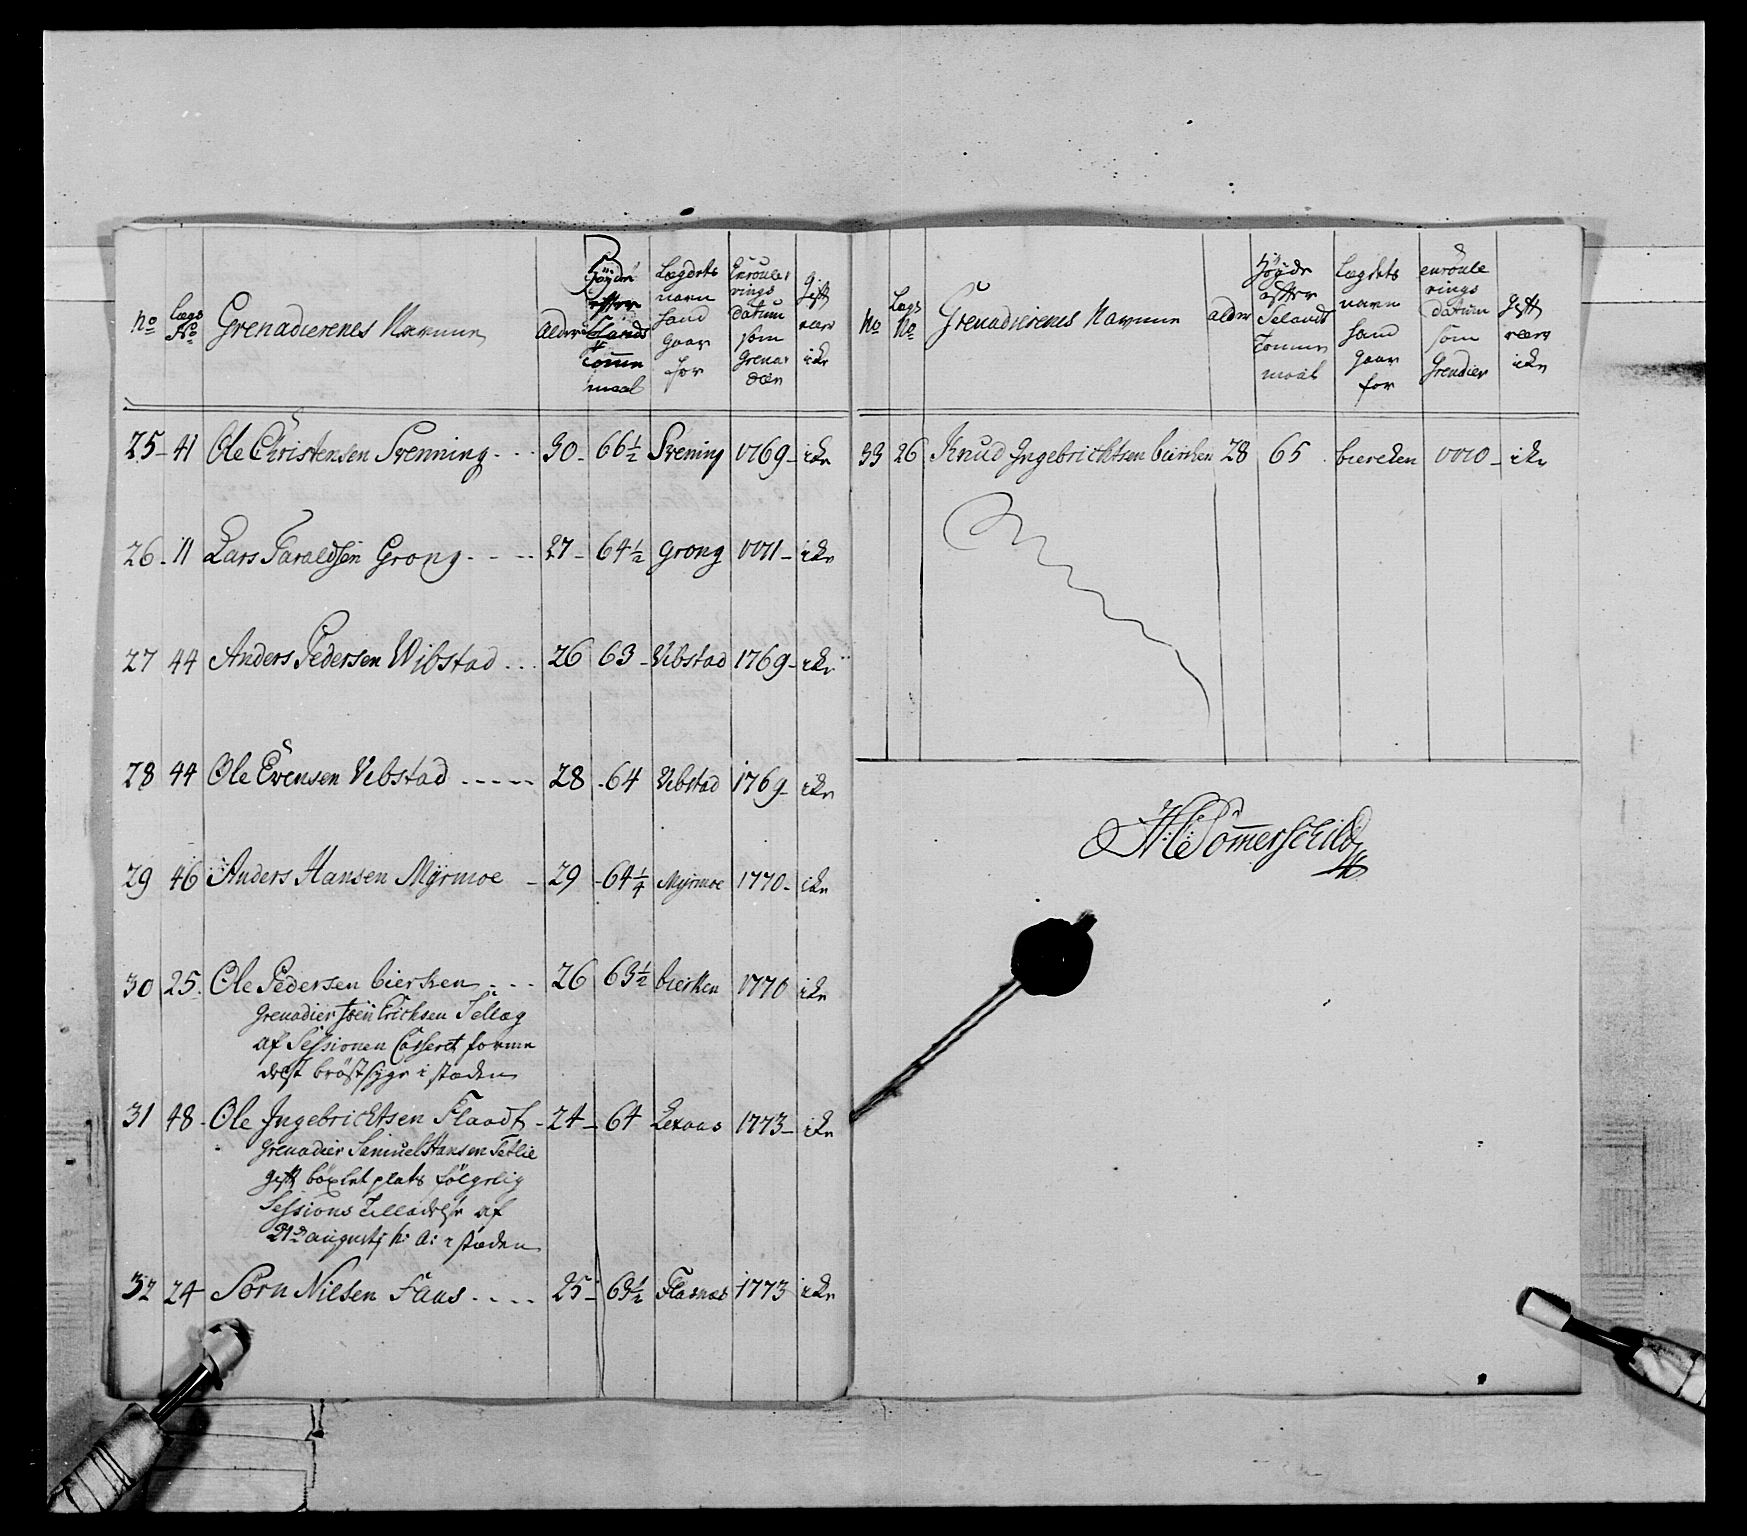 No Lægs No Grenadierenes Navnne Alder Høyde efter Sælands Tomme maal Lægdets navn hand gaar for Enroulerings datum som Grenadeer Gift eller ikke
25 41 Ole Christensen Svenning 30 66½ Svening 1769 ikke
26 11 Lars Haraldsen Grong 27 64½ Grong 1771 ikke
27 44 Anders Pedersen Wibstad 26 63 Vibstad 1769 ikke
28 44 Ole Evensen Vibstad 28 64 Vibstad 1769 ikke
29 46 Anders Hansen Myrmoe 29 64¼ Myrmoe 1770 ikke
30 25 Ole Pedersen bierken 26 63½ bierken 1770 ikke
Grenadier Erichsen Sellæg
af Sessionen Casseret forme
delst bröstsyge i stæden
31 48 Ole Ingebrichtsen Flaadt 24 64 1773 ikke
Grenadier Samuel Hansen
gift böxlet plads følgelig
Sessions Tilladelse af
21de augusti h: a: i stæden
32 24 Sørn Nilsen Faus 25 63½ Flasnæs 1773 ikke
No Lægs No Grenadierenes Navnne alder Høyde efter Selands Tomme maal Lægdets navn hand gaar for enroule rings datum som Grendier Gift ikke
33 26 Knud Ingebrichtsen bierken 28 65 biercken 1770 ikke
H: C: Sommerschild